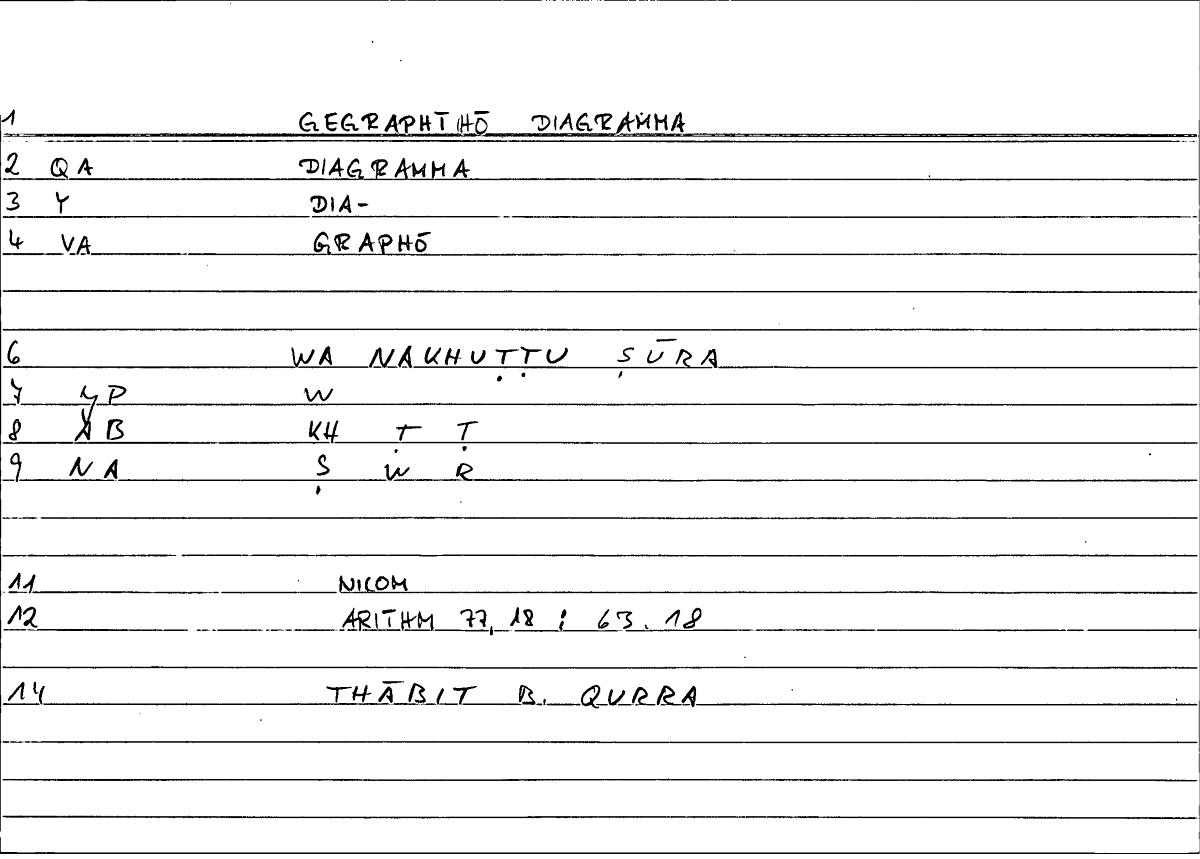 1 GEGRAPHTHŌ DIAGRAMMA
2 QA DIAGRAMMA
3 Y DIA-
4 VA GRAPHŌ
6 WA NAKHUṬṬU ṢŪRA
7 YP W
8 AB KH Ṭ Ṭ
9 NA Ṣ W R
11 NICOM
12 ARITHM 77,18 : 63.18
14 THĀBIT B. QURRA